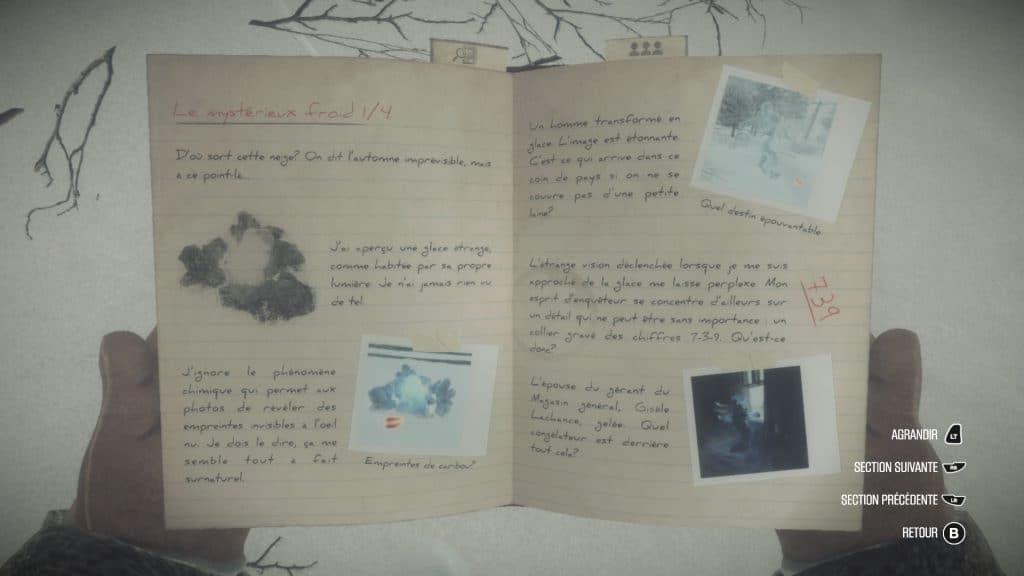 Le mystérieux froid 1/4
D'où sort cette neige? On dit l'automne imprévisible, mais
à ce point-là...
J'ai aperçu une glace étrange,
comme habitée par sa propre
lumière. Je n'ai jamais rien vu
de tel.
J'ignore le phénomène
chimique qui permet aux
photos de révéler des
empreintes invisibles à l'oeil
nu. Je dois le dire, ça me
semble tout à fait
surnaturel.
Empreintes de caribou?
Un homme transformé en
glace. L'image est étonnante.
C'est ce qui arrive dans ce
coin de pays si on ne se
couvre pas d'une petite
laine?
Quel destin épouvantable.
L'étrange vision déclenchée lorsque je me suis
approché de la glace me laisse perplexe. Mon
esprit d'enquêteur se concentre d'ailleurs sur
un détail qui ne peut être sans importance : un
collier gravé des chiffres 7-3-9. Qu'est-ce
donc?
739
L'épouse du gérant du
Magasin général, Gisèle
Lachance, gelée. Quel
congélateur est derrière
tout cela?
AGRANDIR LT
SECTION SUIVANTE RB
SECTION PRÉCÉDENTE LB
RETOUR B